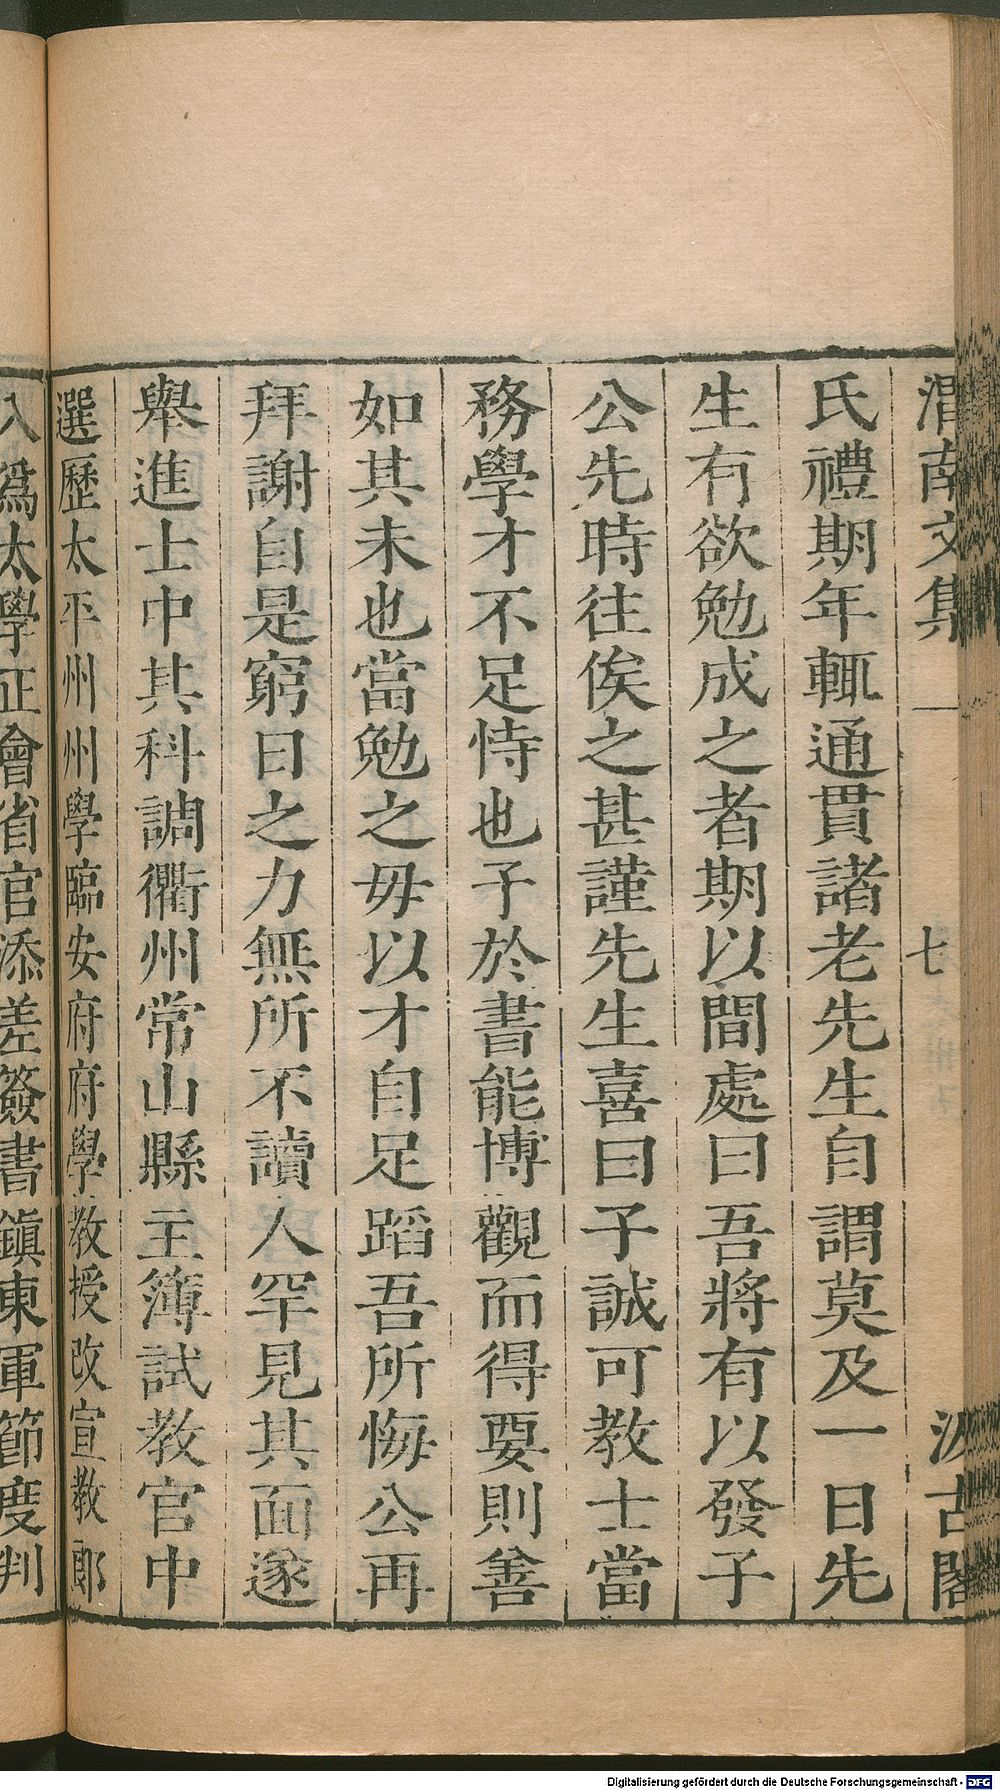 渭南文集
七
汲古閣
氏禮期年輒通貫諸老先生自謂莫及一日先
生有欲勉成之者期以間處曰吾將有以發子
公先時往俟之甚謹先生喜曰子誠可教士當
務學才不足恃也子於書能博觀而得要則善
如其未也當勉之毋以才自足蹈吾所悔公再
拜謝自是窮日之力無所不讀人罕見其面遂
舉進士中其科調衢州常山縣主簿試教官中
選歷太平州州學臨安府府學教授改宣教郎
入爲太學正會省官添差簽書鎭東軍節度判
Digitalisierung gefördert durch die Deutsche Forschungsgemeinschaft - DFG